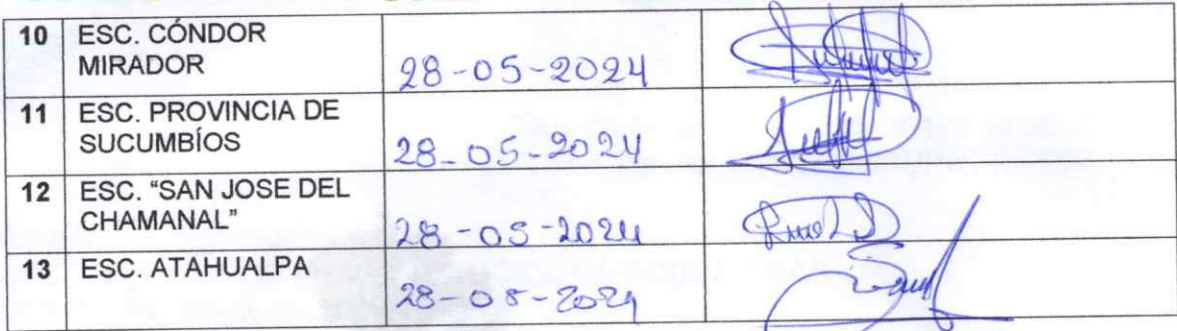 10 ESC. CÓNDOR
MIRADOR 28-05-2024
11 ESC. PROVINCIA DE
SUCUMBÍOS 28-05-2024
12 ESC. “SAN JOSE DEL
CHAMANAL” 28-05-2024
13 ESC. ATAHUALPA
28-05-2024